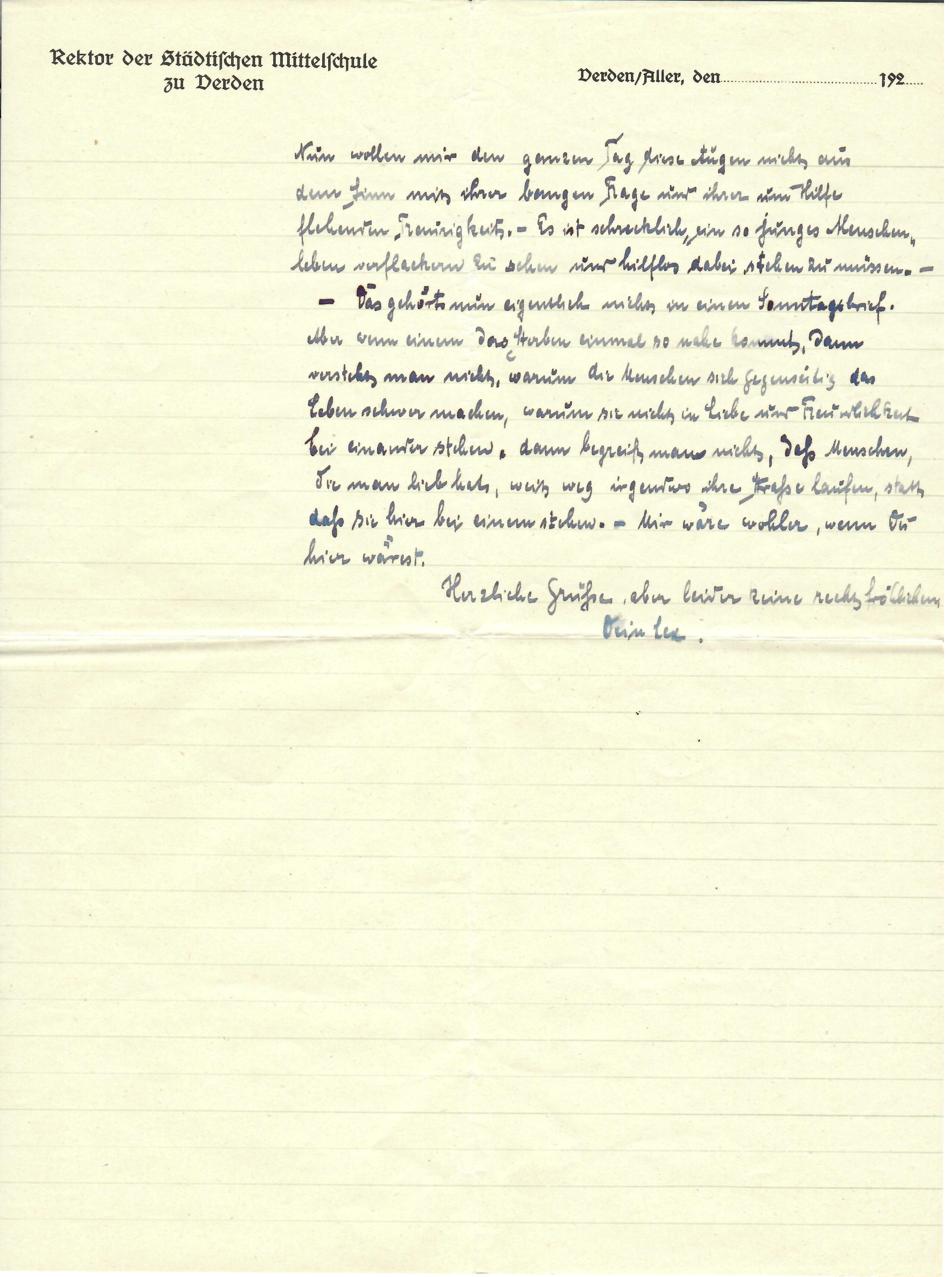 Rektor der Städtischen Mittelschule
zu Verden
Verden/Aller, den 192
Nun wollen mir den ganzen Tag diese Augen nicht aus
dem Sinn mit ihrer bangen Frage und ihrer um Hilfe
flehenden Traurigkeit. - Es ist schrecklich, ein so junges Menschen-
leben verflackern zu sehen und hilflos dabei stehen zu müssen. -
- Das gehört nun eigentlich nicht in einen Sonntagsbrief.
Aber wenn einem das Sterben einmal so nahe kommt, dann
versteht man nicht, warum die Menschen sich gegenseitig das
Leben schwer machen, warum sie nicht in Liebe und Freundlichkeit
bei einander stehen, dann begreift man nicht, daß Menschen,
die man lieb hat, weit weg irgendwo ihre Straße laufen, statt
daß sie hier bei einem stehen. - Mir wäre wohler, wenn Du
hier wärest.
Herzliche Grüße, aber leider keine recht fröhlichen
Dein Lex.